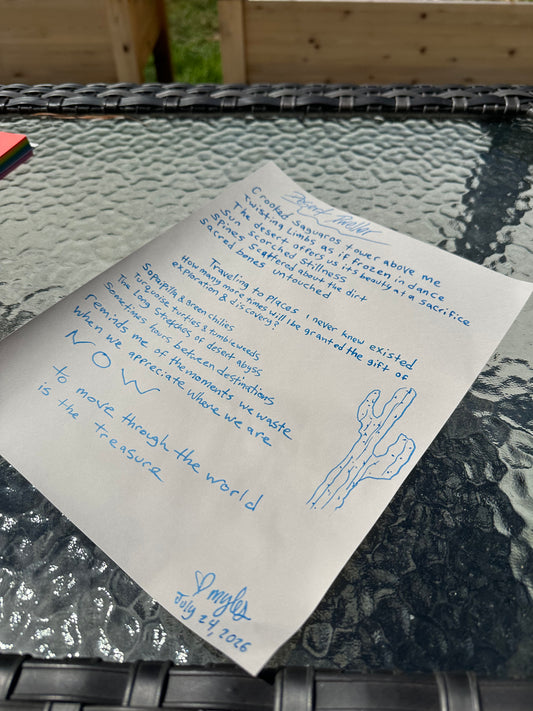 Desert Dweller
Crooked Saguaros tower above me
Twisting limbs as if frozen in dance
The desert offers us its beauty at a sacrifice
Sun scorched stillness
Spines scattered about the dirt
sacred bones untouched
Traveling to places i never knew existed
How many more times will i be granted the gift of
exploration & discovery?
Sopapilla & green chilies
Turquoise turtles & tumbleweeds
The long stretches of desert abyss
Sometimes hours between destinations
reminds me of the moments we waste
when we appreciate where we are
NOW
to move through the world
is the treasure
myles
July 24, 2026